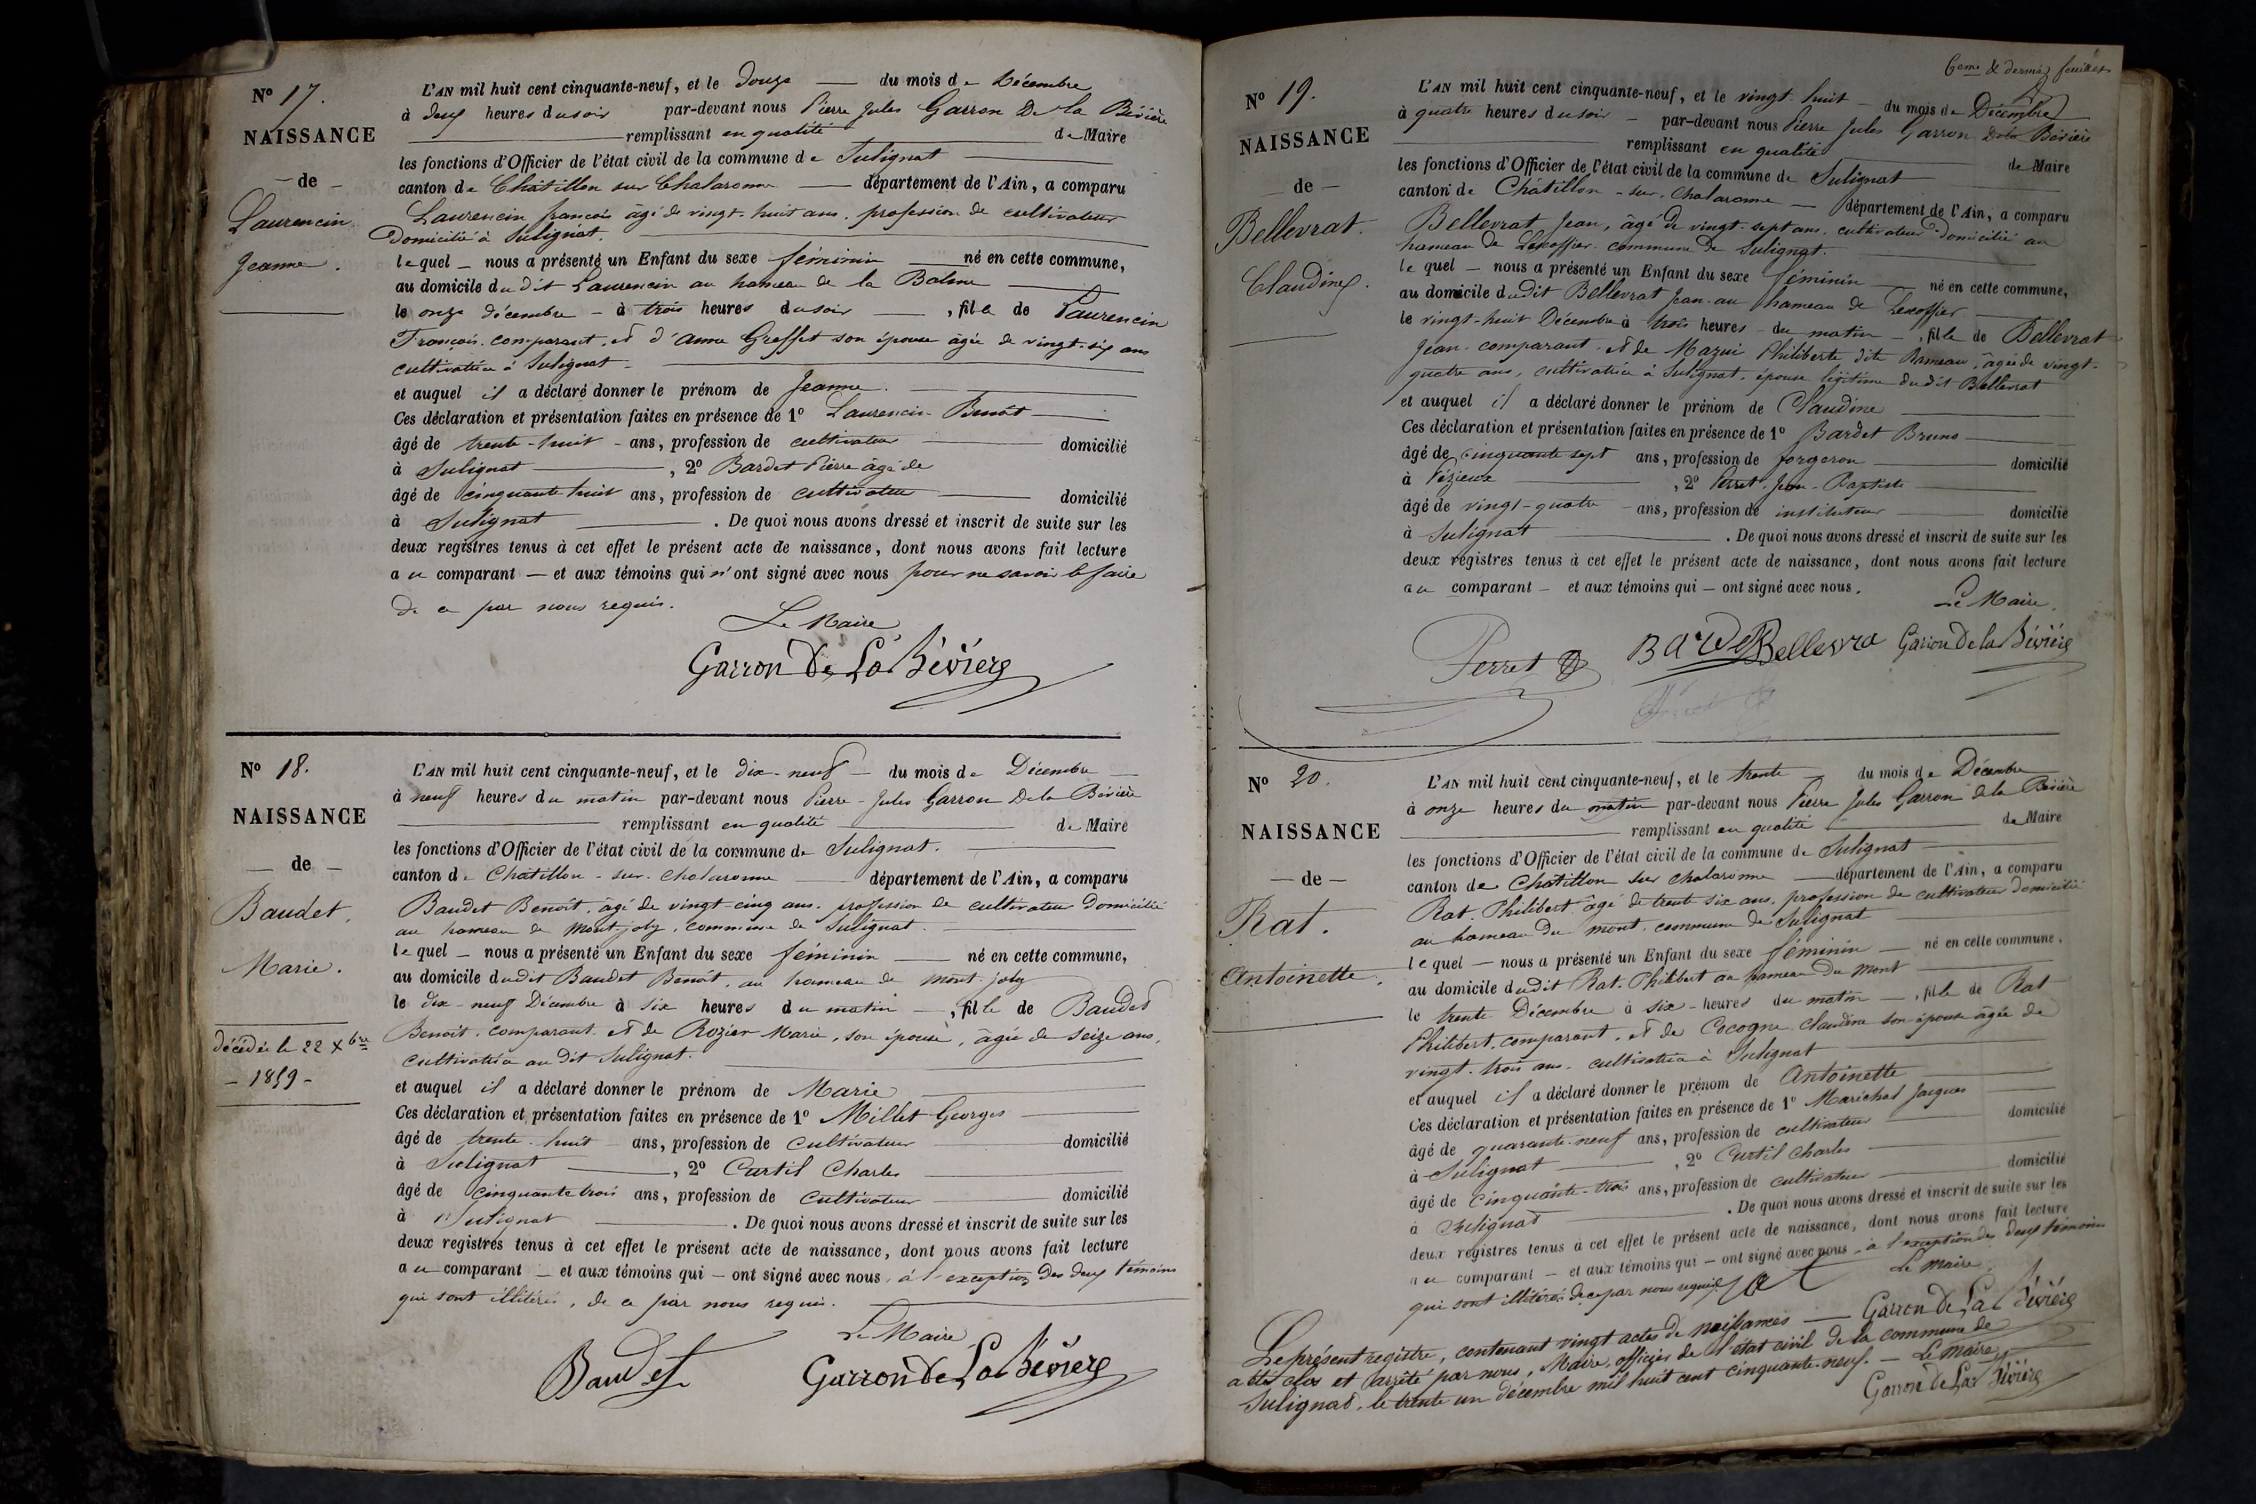 N° 17.
NAISSANCE
— de —
Laurencin
Jeanne.
L'AN mil huit cent cinquante-neuf, et le douze — du mois de Décembre
à deux heures du soir par-devant nous Pierre Jules Garron De la Bévière
remplissant en qualité de Maire
les fonctions d'Officier de l'état civil de la commune de Sulignat
canton de Châtillon sur Chalaronne — département de l'Ain, a comparu
Laurencin françois âgé de vingt-huit ans. profession de cultivateur
Domicilié à Sulignat.
lequel — nous a présenté un Enfant du sexe féminin — né en cette commune,
au domicile dudit Laurencin au hameau de la Balme
le onze décembre — à trois heures du soir — , fille de Laurencin
François. comparant. et d'Anne Greffet son épouse âgée de vingt-six ans
cultivatrice à Sulignat —
et auquel il a déclaré donner le prénom de Jeanne.
Ces déclaration et présentation faites en présence de 1° Laurencin Benoît
âgé de trente-huit — ans, profession de cultivateur — domicilié
à Sulignat — , 2° Bardet Pierre âgé de
âgé de cinquante huit ans, profession de cultivateur — domicilié
à Sulignat — . De quoi nous avons dressé et inscrit de suite sur les
deux registres tenus à cet effet le présent acte de naissance, dont nous avons fait lecture
au comparant — et aux témoins qui n'ont signé avec nous pour ne savoir le faire
de ce par nous requis.
Le Maire
Garron De La Bévière
N° 18.
NAISSANCE
— de —
Baudet.
Marie.
décédée le 22 Xbre
- 1859 -
L'AN mil huit cent cinquante-neuf, et le dix-neuf — du mois de Décembre
à neuf heures du matin par-devant nous Pierre-Jules Garron De la Bévière
remplissant en qualité de Maire
les fonctions d'Officier de l'état civil de la commune de Sulignat.
canton de Chatillon-sur-chalaronne — département de l'Ain, a comparu
Baudet Benoît. âgé de vingt-cinq ans. profession de cultivateur Domicilié
au hameau de Mont-joly, commune de Sulignat.
lequel — nous a présenté un Enfant du sexe féminin — né en cette commune,
au domicile dudit Baudet Benoît, au hameau de mont-joly
le dix-neuf Décembre à six heures du matin — , fille de Baudet
Benoit. comparant. et de Rozier Marie, son épouse, âgée de seize ans,
cultivatrice au dit Sulignat.
et auquel il a déclaré donner le prénom de Marie
Ces déclaration et présentation faites en présence de 1° Millet Georges
âgé de trente-huit ans, profession de cultivateur — domicilié
à Sulignat — , 2° Curtil Charles
âgé de cinquante trois ans, profession de cultivateur — domicilié
à Sulignat — . De quoi nous avons dressé et inscrit de suite sur les
deux registres tenus à cet effet le présent acte de naissance, dont nous avons fait lecture
au comparant — et aux témoins qui — ont signé avec nous, à l'exception des deux témoins
qui sont illitérés, de ce par nous requis.
Le Maire
Baudet
Garron De La Bévière
6eme & dernier feuillet
N° 19.
NAISSANCE
— de —
Bellevrat.
Claudine.
L'AN mil huit cent cinquante-neuf, et le vingt-huit — du mois de Décembre
à quatre heures du soir — par-devant nous Pierre Jules Garron De la Bévière
remplissant en qualité de Maire
les fonctions d'Officier de l'état civil de la commune de Sulignat
canton de Châtillon-sur-Chalaronne — département de l'Ain, a comparu
Bellevrat Jean, âgé de vingt-sept ans. cultivateur domicilié au
hameau de commune de Sulignat.
lequel — nous a présenté un Enfant du sexe féminin — né en cette commune,
au domicile dudit Bellevrat Jean au hameau de
le vingt-huit Décembre à trois heures du matin — , fille de Bellevrat
Jean. comparant. et de Mazui Philiberte dite Rameau, âgée de vingt-
quatre ans, cultivatrice à Sulignat, épouse légitime dudit Bellevrat
et auquel il a déclaré donner le prénom de Claudine
Ces déclaration et présentation faites en présence de 1° Bardet Bruno
âgé de cinquante sept ans, profession de forgeron — domicilié
à Vézieux — , 2° Perret Jean-Baptiste
âgé de vingt-quatre — ans, profession de instituteur — domicilié
à Sulignat — . De quoi nous avons dressé et inscrit de suite sur les
deux registres tenus à cet effet le présent acte de naissance, dont nous avons fait lecture
au comparant — et aux témoins qui — ont signé avec nous.
Le Maire.
Perret Bardet Bellevra Garron De la Bévière
N° 20.
NAISSANCE
— de —
Rat.
Antoinette.
L'AN mil huit cent cinquante-neuf, et le trente du mois de Décembre
à onze heures du matin par-devant nous Pierre Jules Garron de la Bévière
remplissant en qualité de Maire
les fonctions d'Officier de l'état civil de la commune de Sulignat
canton de Chatillon sur chalaronne — département de l'Ain, a comparu
Rat. Philibert âgé de trente six ans. profession de cultivateur domicilié
au hameau du mont. commune de Sulignat
lequel — nous a présenté un Enfant du sexe féminin — né en cette commune.
au domicile dudit Rat. Philibert au hameau du mont
le trente Décembre à six — heures du matin — , fille de Rat
Philibert. comparant. et de Cocogne Claudine son épouse âgée de
vingt-trois ans. cultivatrice à Sulignat
et auquel il a déclaré donner le prénom de Antoinette
Ces déclaration et présentation faites en présence de 1° Maréchal Jacques
âgé de quarante-neuf ans, profession de cultivateur domicilié
à Sulignat — , 2° Curtil Charles
âgé de cinquante-trois ans, profession de cultivateur domicilié
à Sulignat . De quoi nous avons dressé et inscrit de suite sur les
deux registres tenus à cet effet le présent acte de naissance, dont nous avons fait lecture
au comparant — et aux témoins qui — ont signé avec nous — à l'exception des deux témoins
qui sont illitérés de ce par nous requis
Le Maire.
Garron De La Bévière
Le présent registre, contenant vingt actes de naissances
a été clos et arrêté par nous, Maire, officier de l'état civil de la commune de
Sulignat, le trente un décembre mil huit cent cinquante-neuf. — Le Maire,
Garron De La Bévière